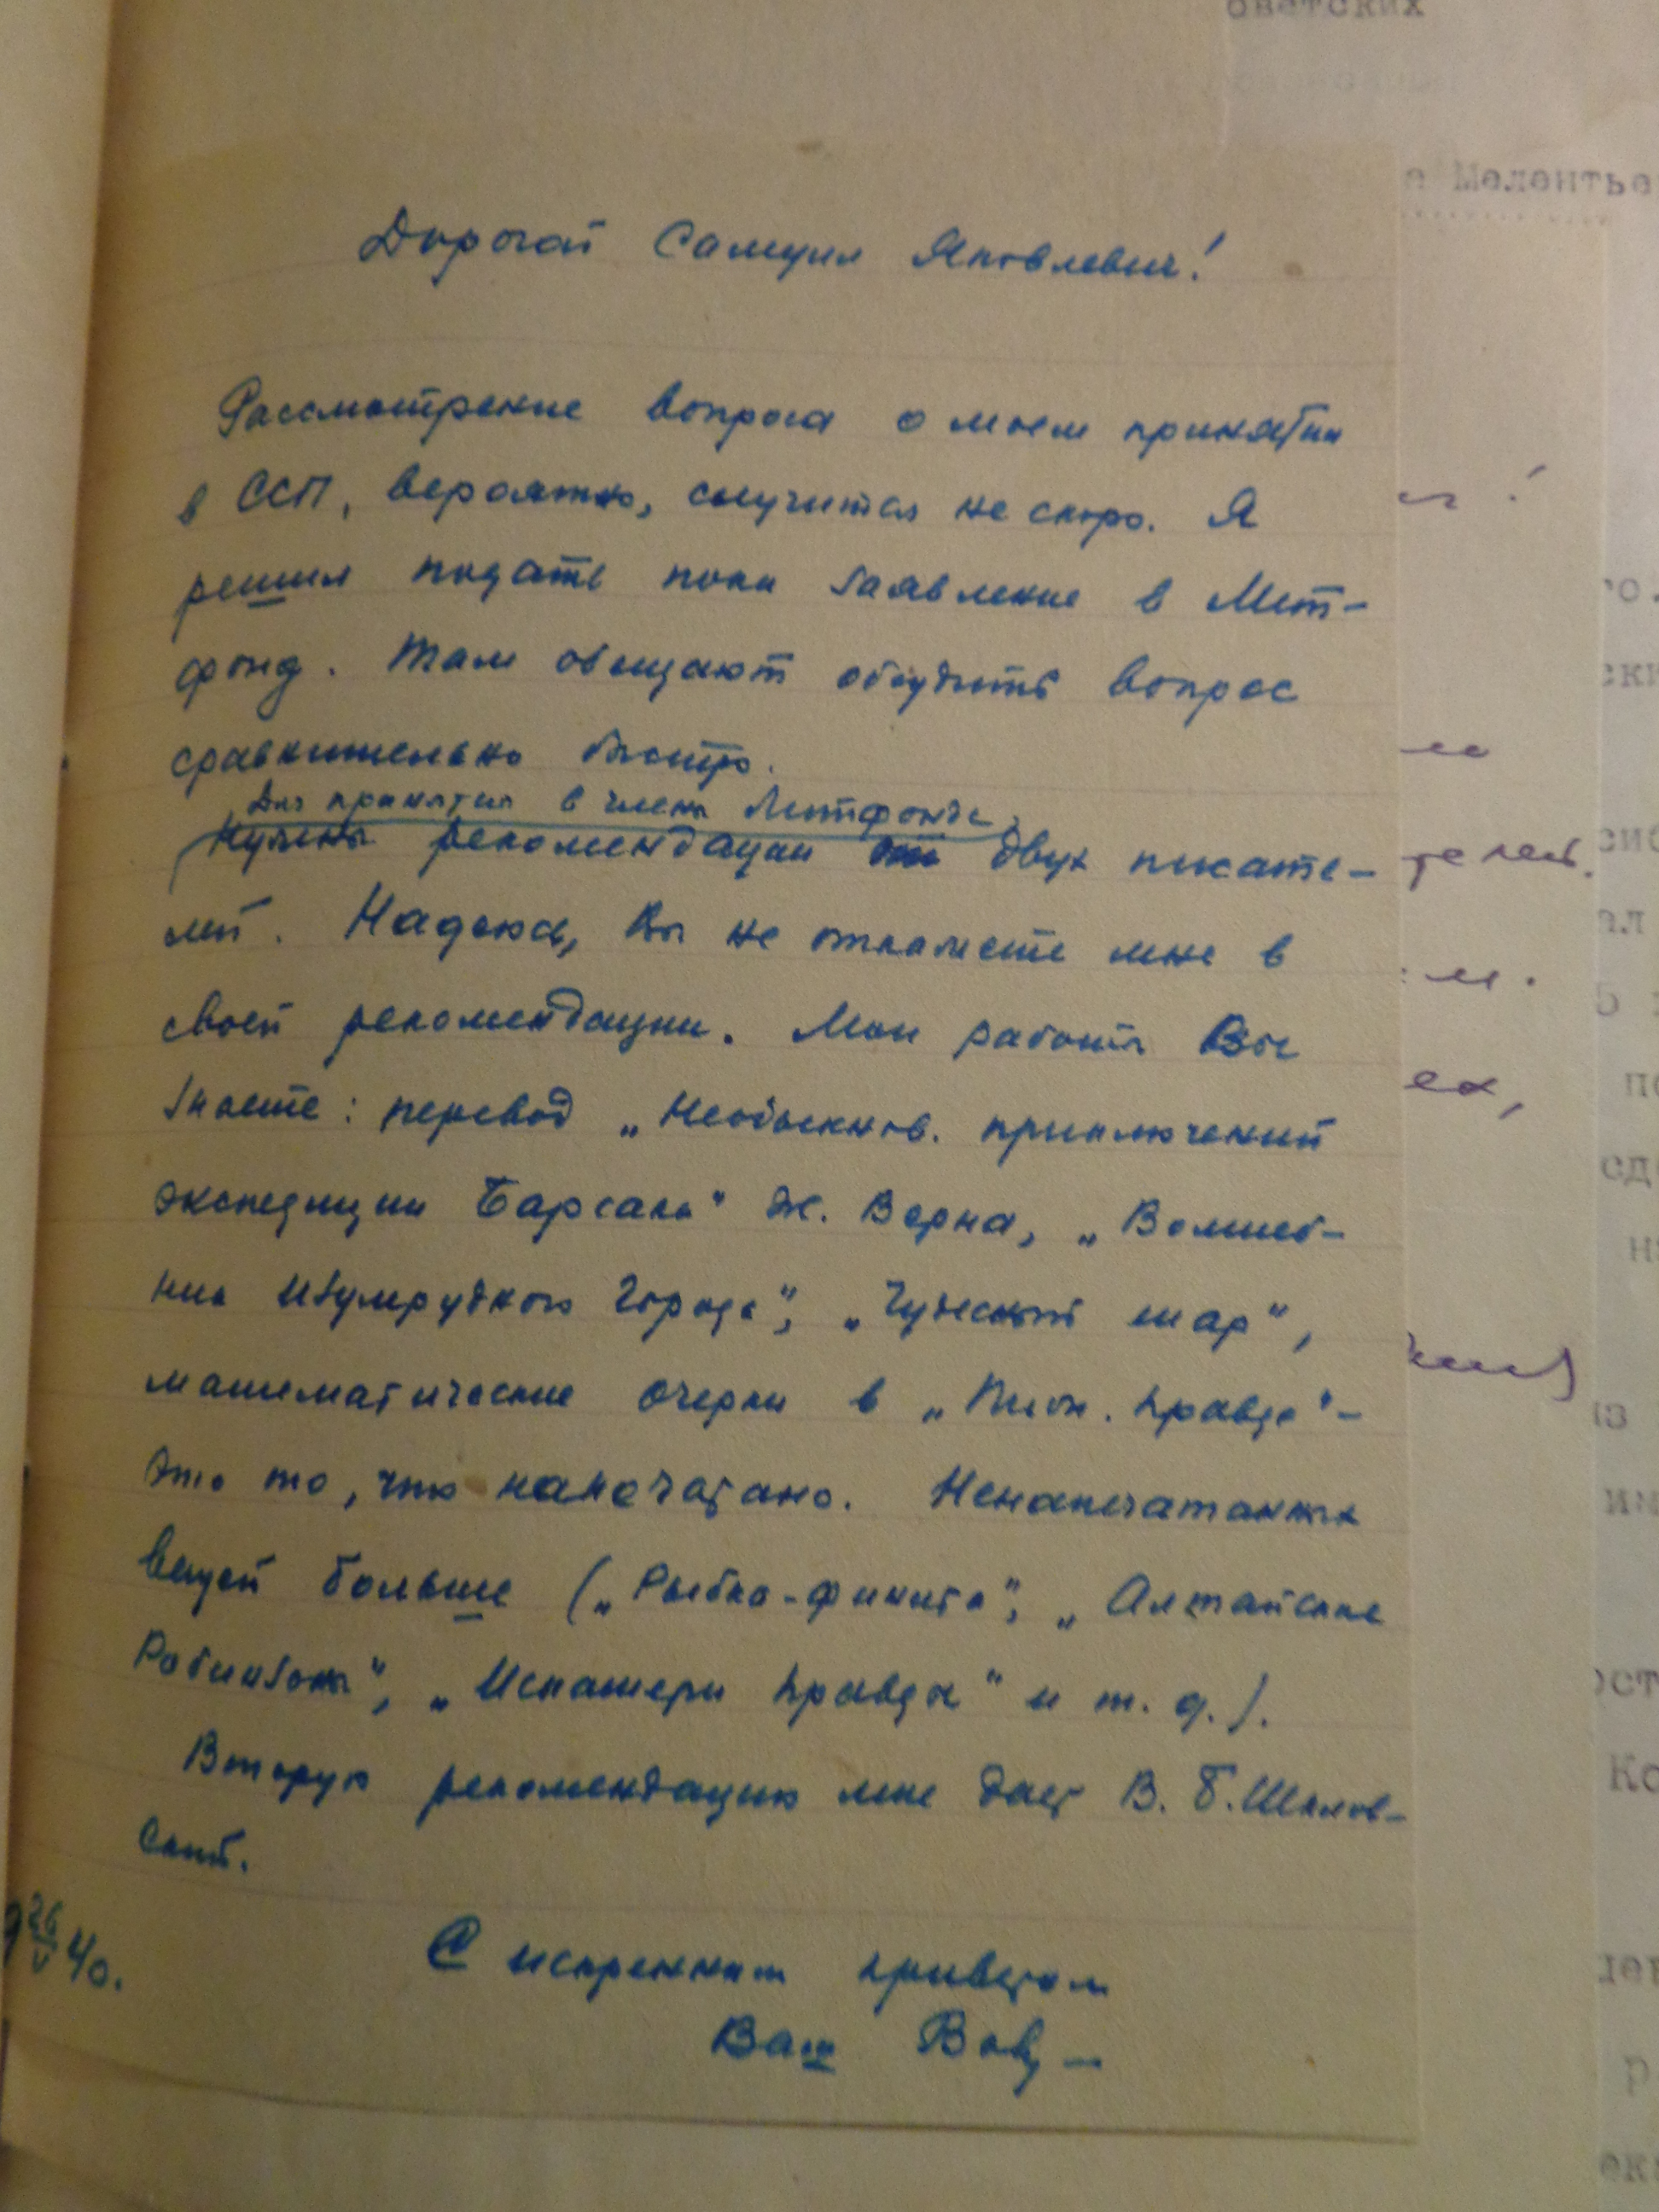 оветских
е Мелентье
Дорогой Самуил Яковлевич!
Рассмотрение вопроса о моем принятии
в ССП, вероятно, случится не скоро. Я
решил подать пока заявление в Лит-
фонд. Там обещают обсудить вопрос
сравнительно быстро.
Для принятия в члены Литфонда
Нужны рекомендации двух писате-
лей. Надеюсь, Вы не откажете мне в
своей рекомендации. Мои работы Вы
знаете: перевод „Необыкнов. приключений
экспедиции Барсака" Ж. Верна, „Волшеб-
ник Изумрудного Города", „Чудесный шар",
математические очерки в „Пион. правде" -
это то, что напечатано. Ненапечатанных
вещей больше („Рыбка-финита", „Алтайские
Робинзоны", „Искатели правды" и т. д.).
Вторую рекомендацию мне дает В. Б. Шклов-
ский.
26/V 40.
С искренним приветом
Ваш